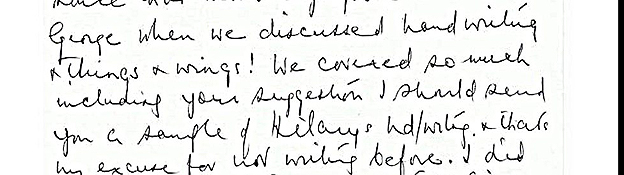 George when we discussed handwriting
& things & wings! We covered so much
including your suggestion I should send
you a sample of Hilarys hd/writg. & that's
my excuse for not writing before. I did